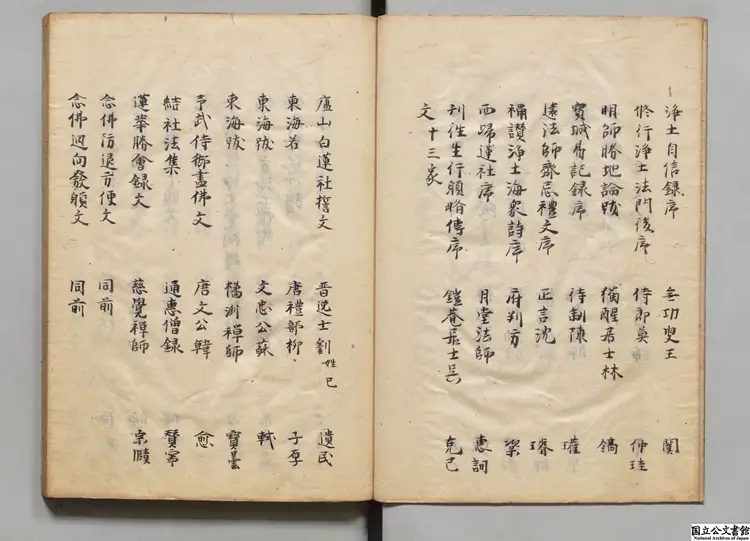 淨土自信録序 無功叟王 闐
修行淨土法門後序 侍郎吳 仲珪
明師勝地論跋 猶醒居士林 鎬
寶城易記録序 侍制陳 瓘
遠法師齋忌禮文序 正言沈 璿
禱讃淨土海衆詩序 府判方 槩
西歸蓮社序 月堂法師 惠詢
刋往生行願略傳序 鎧菴居士吳 克己
文十三家
廬山白蓮社誓文 晉逸士劉姓已 遺民
東海若 唐禮部柳 子厚
東海跋 文忠公蘇 軾
東海跋 橘洲禪師 寶曇
于武侍御畫佛文 唐文公韓 愈
結社法集 通惠僧録 賛寧
蓮華勝會録文 慈覺禪師 宗賾
念佛防退方便文 同前
念佛迴向發願文 同前
国立公文書館
National Archives of Japan